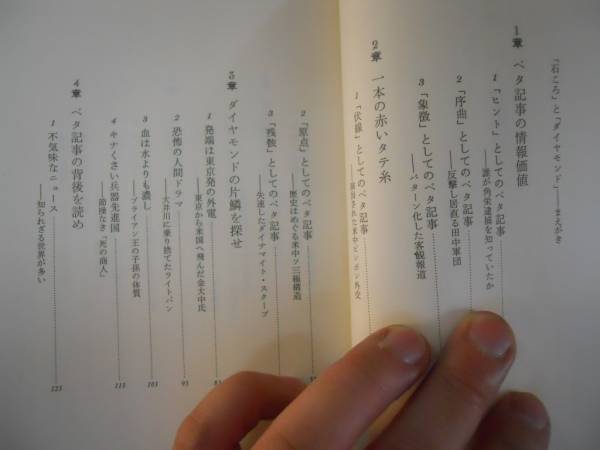 「石ころ」と「ダイヤモンド」――まえがき
1章 ベタ記事の情報価値
1 「ヒント」としてのベタ記事
――誰が角栄逮捕を知っていたか
2 「序曲」としてのベタ記事
――反撃し居直る田中軍団
3 「象徴」としてのベタ記事
――パターン化した客観報道
2章 一本の赤いタテ糸
1 「伏線」としてのベタ記事
――演出された米中ピンポン外交
2 「原点」としてのベタ記事
――歴史はめぐる米中ソ三極構造
3 「残骸」としてのベタ記事
――失速したダイナマイト・スクープ
3章 ダイヤモンドの片鱗を探せ
1 発端は東京発の外電
――東京から米国へ飛んだ金大中氏
2 恐怖の人間ドラマ 93
――大井川に乗り捨てたライトバン
3 血は水よりも濃し 103
――ブライアン王の子孫の体質
4 キナくさい兵器先進国 111
――節操なき「死の商人」
4章 ベタ記事の背後を読め
1 不気味なニュース 123
――知られざる世界が多い